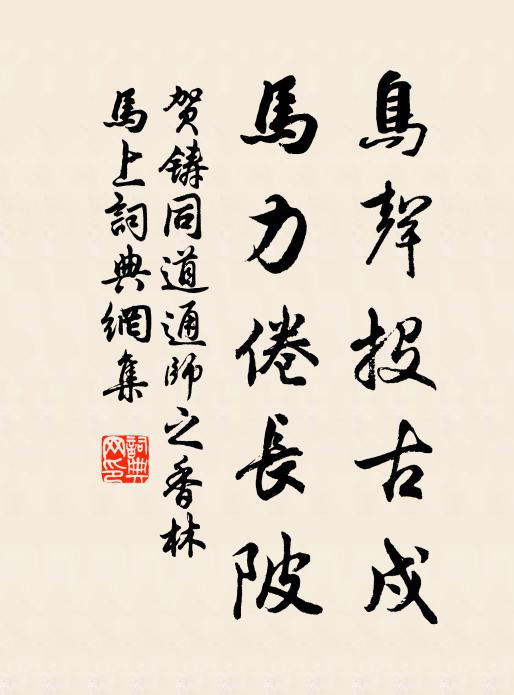 鳥聲投古戍
馬力倦長陂
賀鑄同道通師之香林
馬上詞典網集
詞典网印